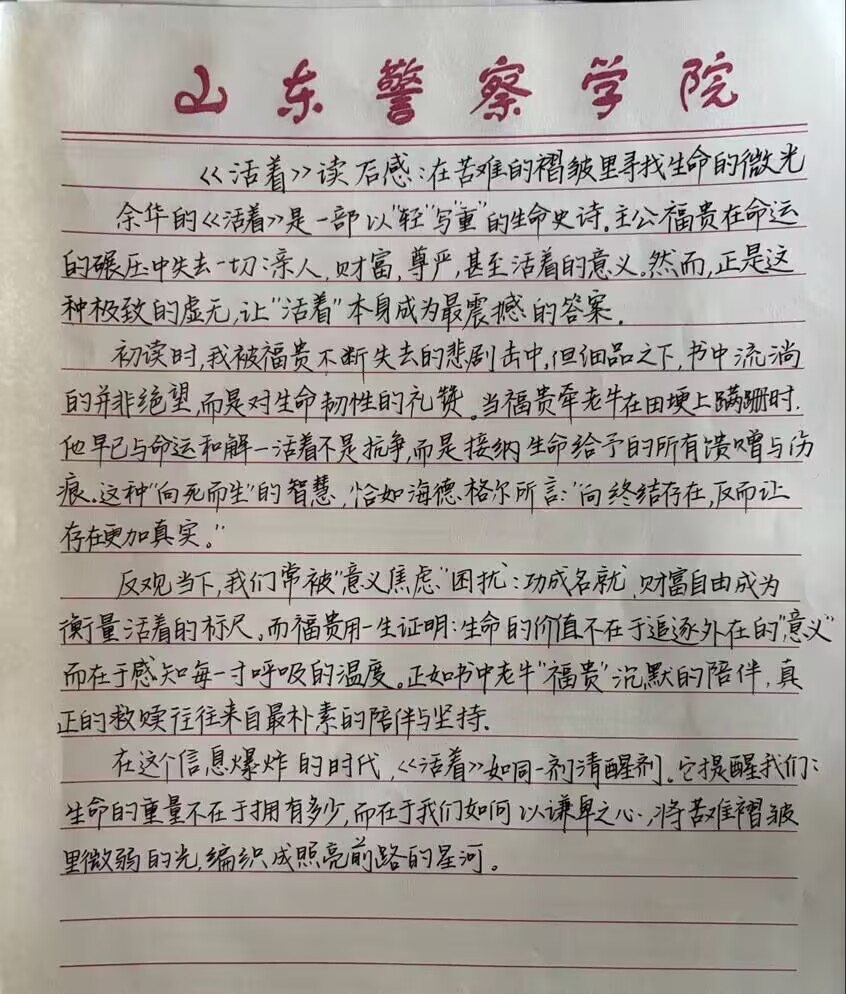 山东警察学院
《活着》读后感:在苦难的褶皱里寻找生命的微光
余华的《活着》是一部以"轻"写"重"的生命史诗.主公福贵在命运
的碾压中失去一切:亲人,财富,尊严,甚至活着的意义.然而,正是这
种极致的虚无,让"活着"本身成为最震撼的答案.
初读时,我被福贵不断失去的悲剧击中,但细品之下,书中流淌
的并非绝望,而是对生命韧性的礼赞.当福贵牵老牛在田埂上蹒跚时.
他早已与命运和解—活着不是抗争,而是接纳生命给予的所有馈赠与伤
痕.这种"向死而生"的智慧,恰如海德格尔所言:"向终结存在,反而让
存在更加真实。"
反观当下,我们常被"意义焦虑"困扰:功成名就,财富自由成为
衡量活着的标尺。而福贵用一生证明:生命的价值不在于追逐外在的"意义"
而在于感知每一寸呼吸的温度。正如书中老牛"福贵"沉默的陪伴,真
正的救赎往往来自最朴素的陪伴与坚持.
在这个信息爆炸的时代,《活着》如同一剂清醒剂.它提醒我们:
生命的重量不在于拥有多少,而在于我们如何以谦卑之心,将苦难褶皱
里微弱的光,编织成照亮前路的星河。